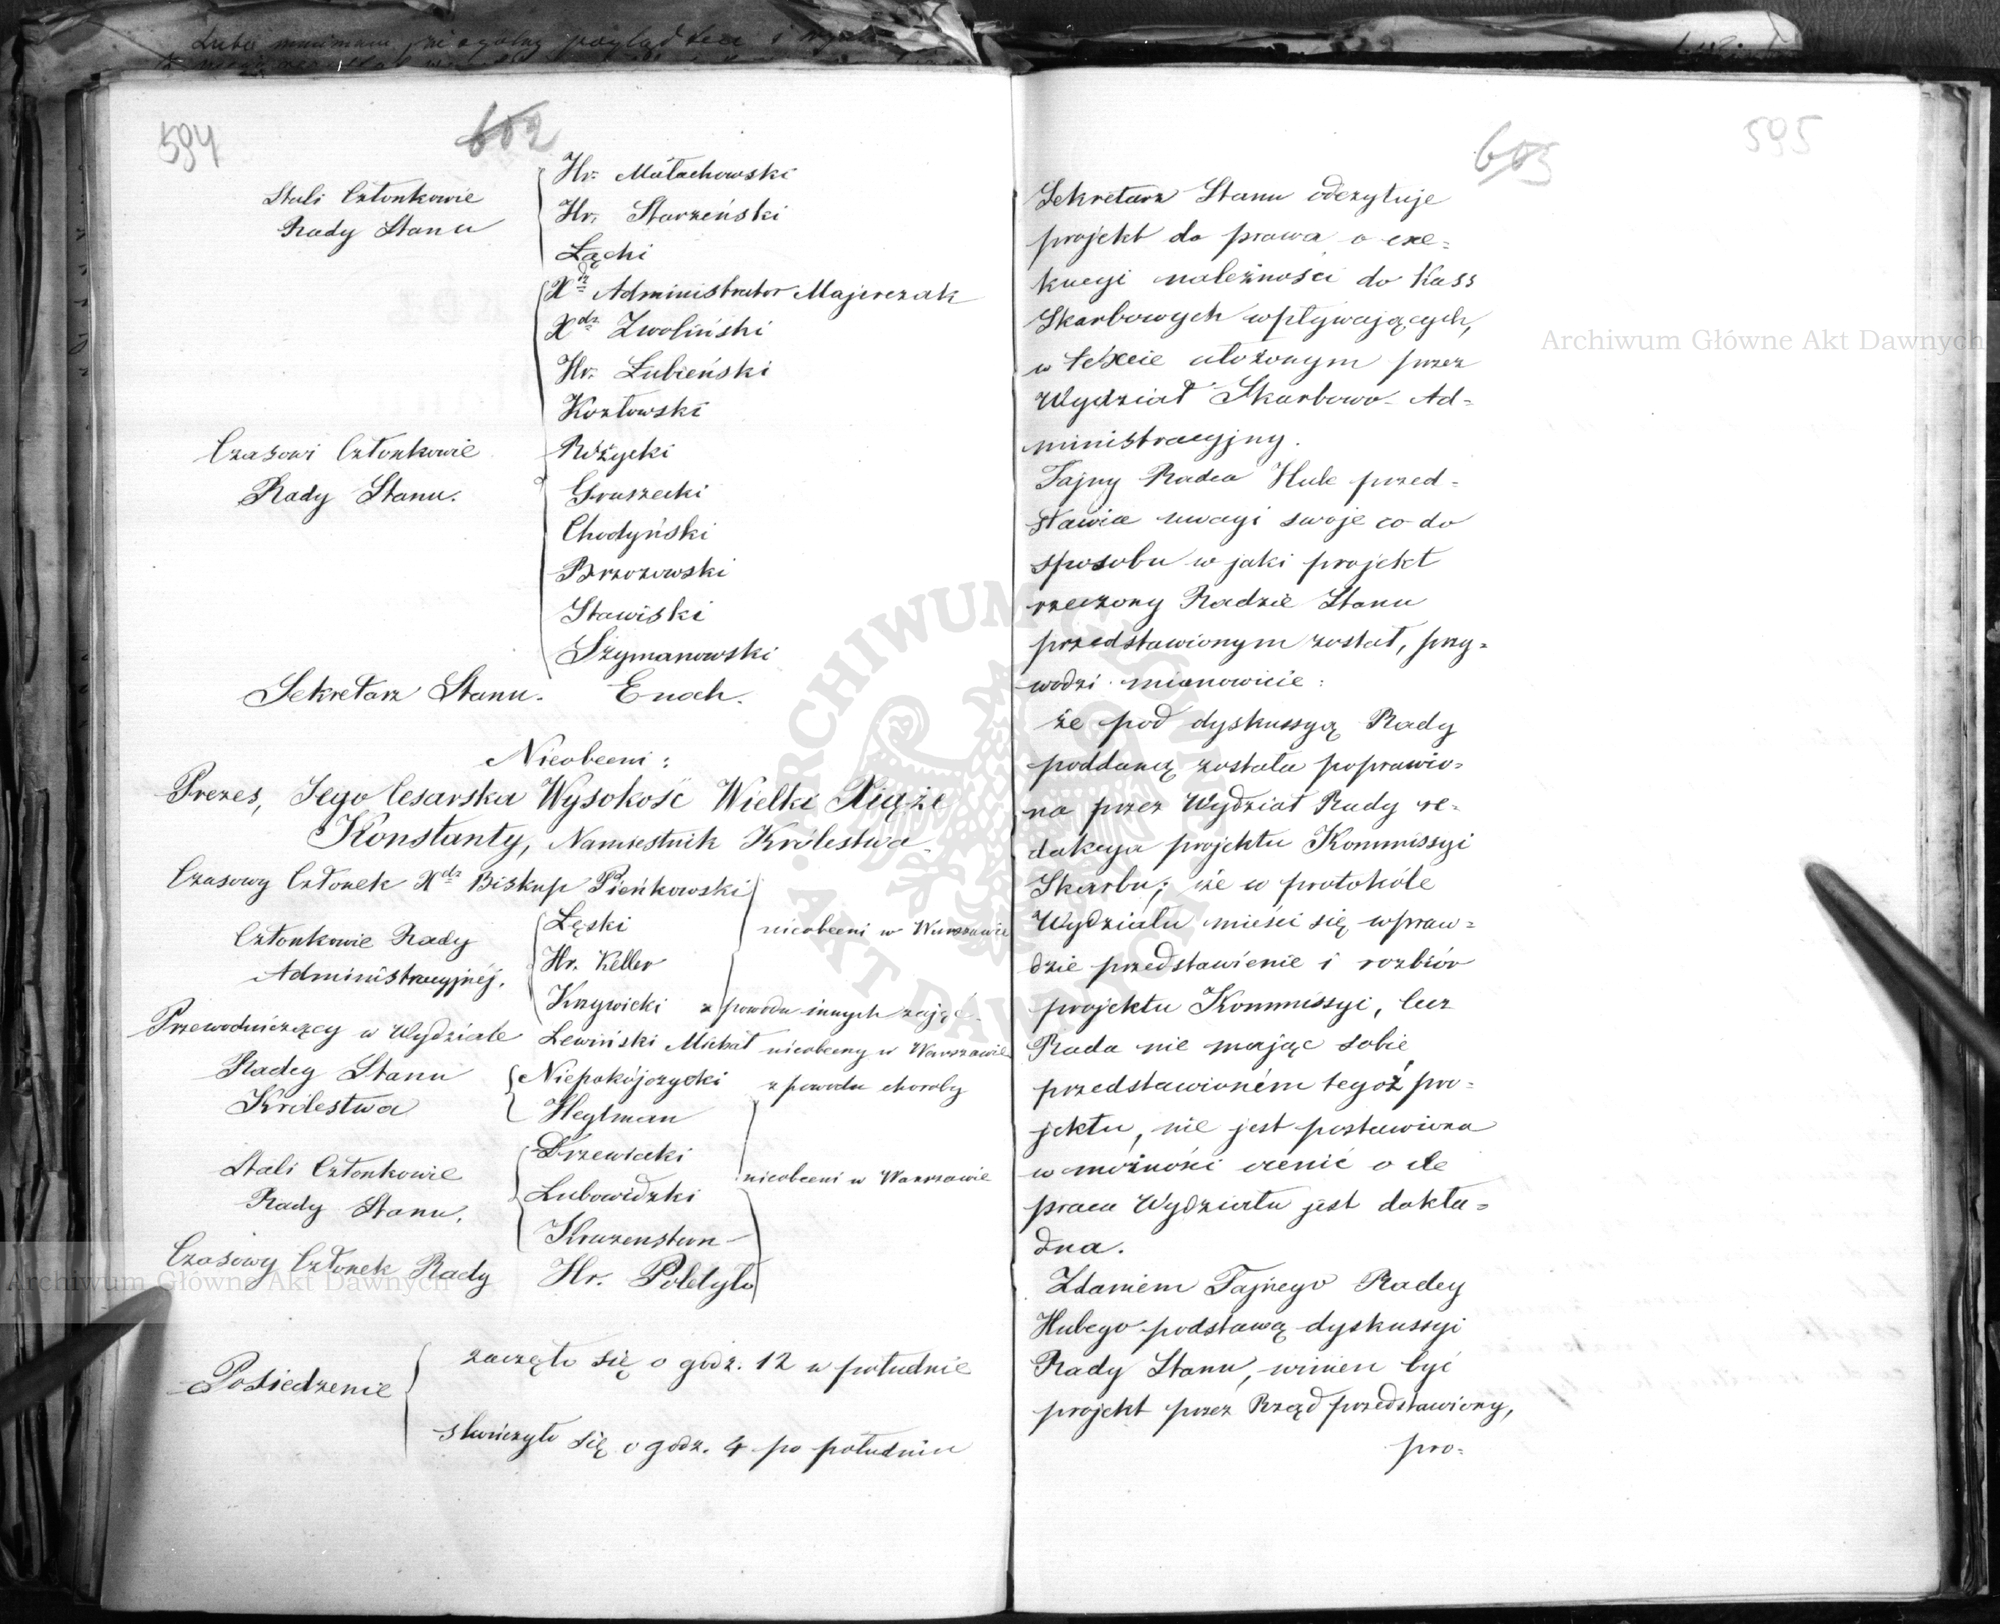 594
602
Stali Członkowie
Rady Stanu
Hr. Małachowski
Hr. Starzeński
Łącki
Xdz Administrator Majerczak
Xdz Zwoliński
Hr. Łubieński
Kozłowski
Czasowi Członkowie
Rady Stanu.
Różycki
Gruszecki
Chodyński
Brzozowski
Stawiski
Szymanowski
Sekretarz Stanu. Enoch.
Nieobecni:
Prezes, Jego Cesarska Wysokość Wielki Xiąże
Konstanty, Namiestnik Królestwa.
Czasowy Członek Xdz Biskup Pieńkowski
Członkowie Rady
Administracyjnéj.
Łęski
Hr. Keller
nieobecni w Warszawie
Krzywicki z powodu innych zajęć
Przewodniczący w Wydziale Lewiński Michał nieobecny w Warszawie
Radcy Stanu
Królestwa
Niepokójczycki z powodu choroby
Heylman
Stali Członkowie
Rady Stanu.
Drzewiecki
Lubowidzki
Kruzenstern
nieobecni w Warszawie
Czasowy Członek Rady Hr. Poletyło
Posiedzenie
zaczęło się o godz. 12 w południe
skończyło się o godz. 4 po południu
603
595
Sekretarz Stanu odczytuje
projekt do prawa o exe-
kucyi należności do Kass
Skarbowych wpływających,
w texcie ułożonym przez
Wydział Skarbowo-Ad-
ministracyjny.
Tajny Radca Hube przed-
stawia uwagi swoje co do
sposobu w jaki projekt
rzeczony Radzie Stanu
przedstawionym został, przy-
wodzi mianowicie:
że pod dyskussyą Rady
poddaną została poprawio-
na przez Wydział Rady re-
dakcya projektu Kommissyi
Skarbu; że w protokóle
Wydziału mieści się wpraw-
dzie przedstawienie i rozbiór
projektu Kommissyi, lecz
Rada nie mając sobie
przedstawioném tegoż pro-
jektu, nie jest postawiona
w możności ocenić o ile
praca Wydziału jest dokła-
dna.
Zdaniem Tajnego Radcy
Hubego podstawą dyskussyi
Rady Stanu, winien być
projekt przez Rząd przedstawiony,
pro-
Archiwum Główne Akt Dawnych
Archiwum Główne Akt Dawnych
ARCHIWUM GŁÓWNE AKT DAWNYCH